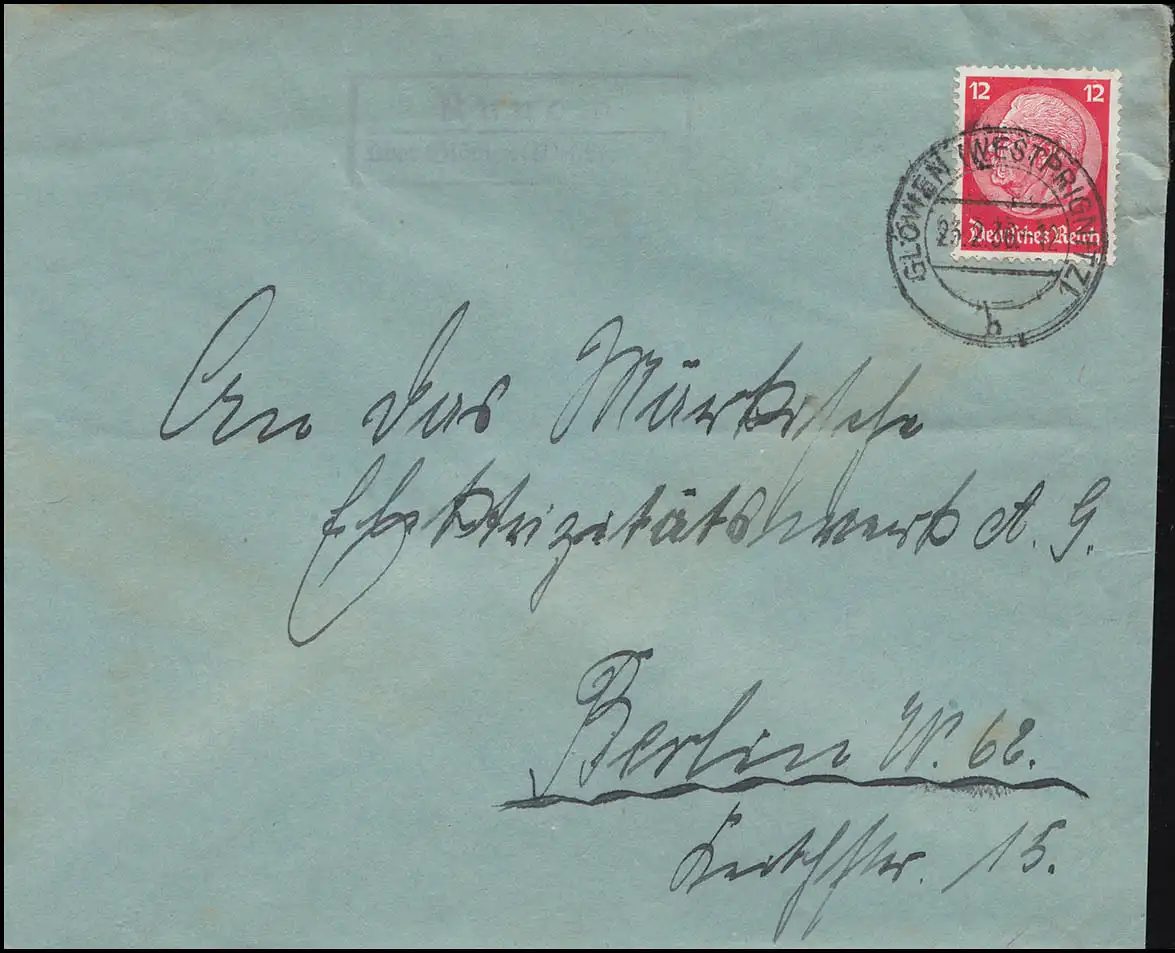 12 12
Deutsches Reich
GLÖWEN (WESTPRIGNITZ)
b
An das Märkische
Elektrizitätswerk A. G.
Berlin W. 62.
15.